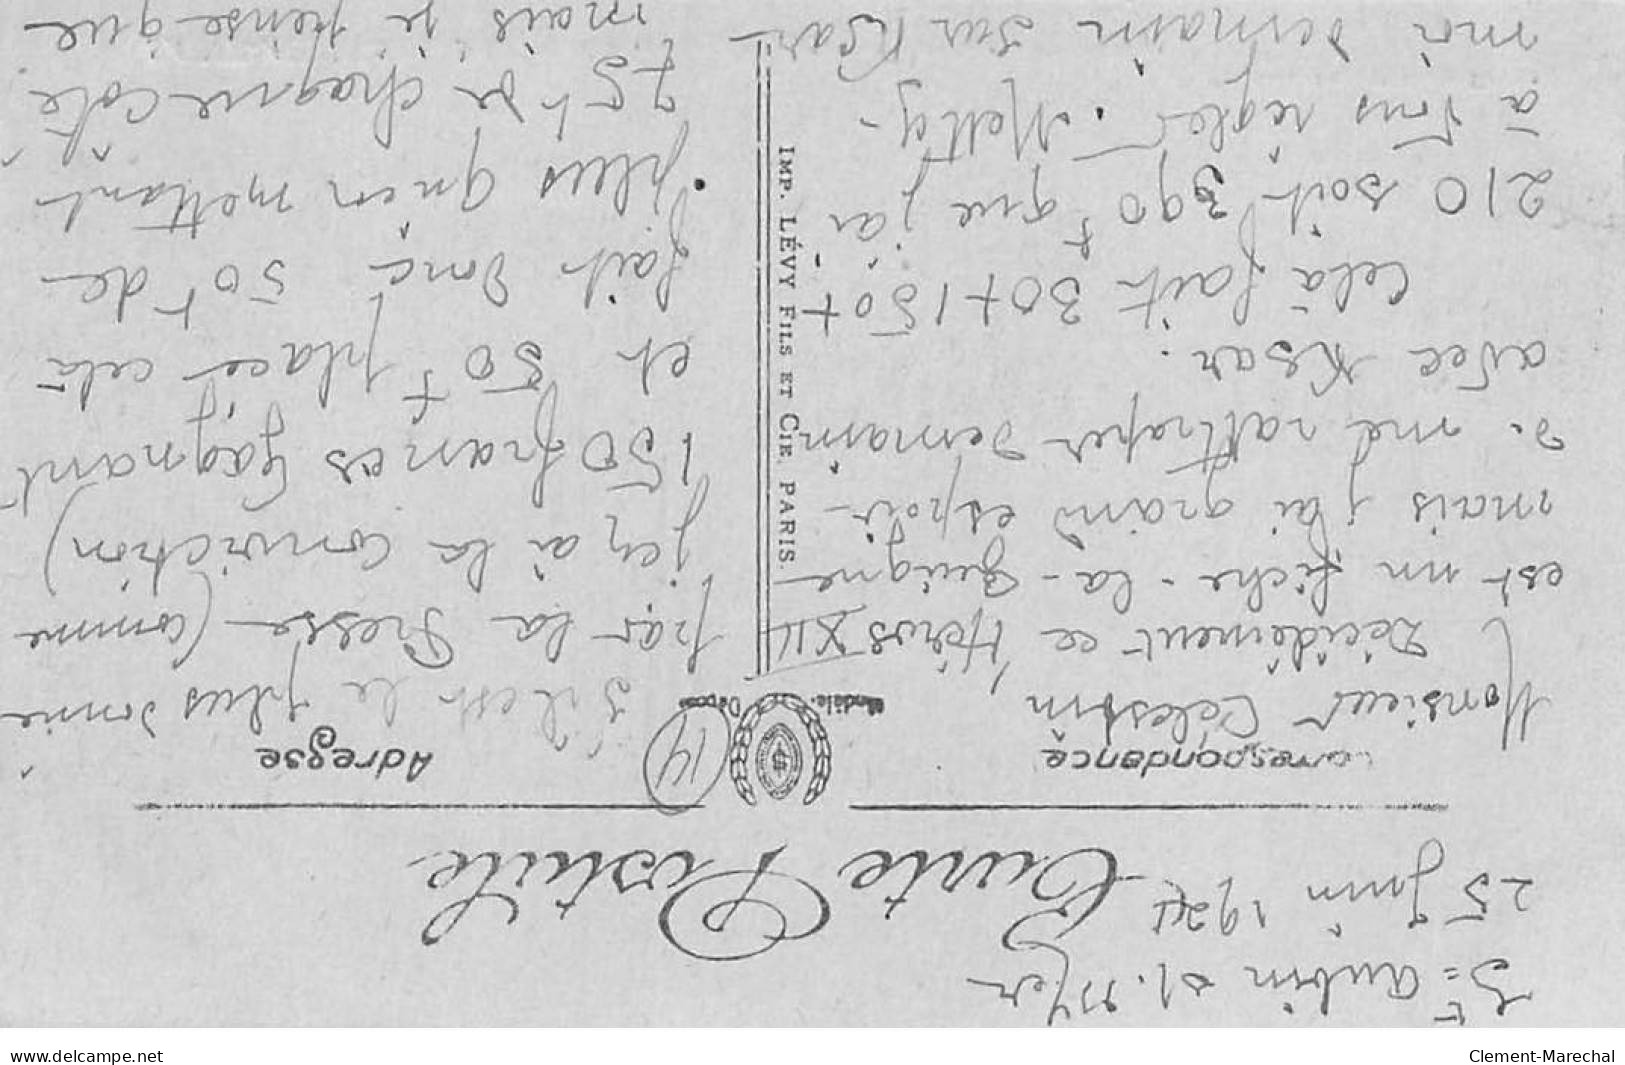 St Aubin s/. Mer
25 Juin 1921
Carte Postale
Correspondance
Adresse
Modèle. Déposé
14
Monsieur Célestin
Décidément ce Héros XII
est un fiche-la-guigne
mais j'ai grand espoir
de me rattraper demain
avec Ksar.
Celà fait 30+150+
210 soit 390f que j'ai
à vous régler. Mettez-
moi demain sur Ksar
S'il est le plus donné
par la Presse (comme
j'en ai la conviction)
150 francs Gagnant
et 50f placé celà
fait donc 50f de
plus qu'en mettant
75f de chaque côté
mais je pense que
IMP. LÉVY FILS ET CIE. PARIS.
www.delcampe.net
Clement-Marechal